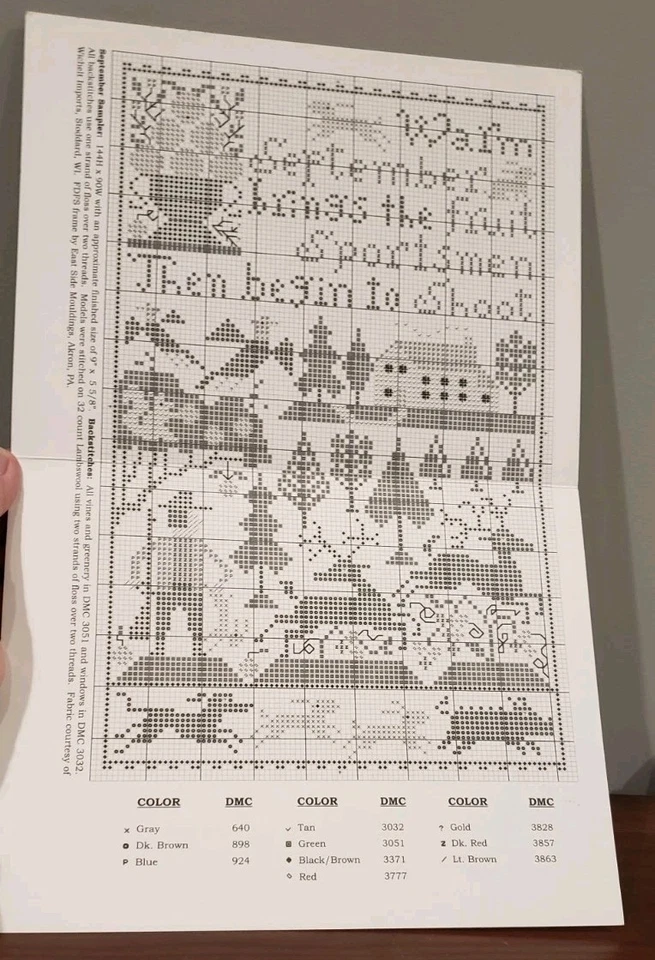 Warm
September
brings the fruit
Sportsmen
Then begin to Shoot
September Sampler: 144H x 90W with an approximate finished size of 9" x 5 5/8". Backstitches: All vines and greenery in DMC 3051 and windows in DMC 3032.
All backstitches use one strand of floss over two threads. Models were stitched on 32 count Lambswool using two strands of floss over two threads. Fabric courtesy of
Wichelt Imports, Stoddard, WI. FDPS frame by East Side Mouldings, Akron, PA
COLOR DMC COLOR DMC COLOR DMC
x Gray 640 Tan 3032 ? Gold 3828
Dk. Brown 898 Green 3051 z Dk. Red 3857
P Blue 924 ♦ Black/Brown 3371 / Lt. Brown 3863
◇ Red 3777